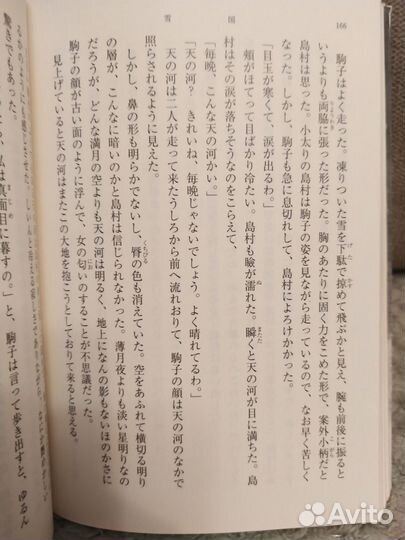 雪国
166
駒子はよく走った。凍りついた雪を下駄で掠めて飛ぶかと見え、腕も前後に振ると
いうよりも両脇に張った形だった。胸のあたりに固く力をこめた形で、案外小柄だと
島村は思った。小太りの島村は駒子の姿を見ながら走っているので、なお早く苦しく
なった。しかし、駒子も急に息切れして、島村によろけかかった。
「目玉が寒くて、涙が出るわ。」
頰がほてって目ばかり冷たい。島村も瞼が濡れた。瞬くと天の河が目に満ちた。島
村はその涙が落ちそうなのをこらえて、
「毎晩、こんな天の河かい。」
「天の河？ きれいね。毎晩じゃないでしょう。よく晴れてるわ。」
天の河は二人が走って来たうしろから前へ流れおりて、駒子の顔は天の河のなかで
照らされるように見えた。
しかし、鼻の形も明らかでないし、脣の色も消えていた。空をあふれて横切る明り
の層が、こんなに暗いのかと島村は信じられなかった。薄月夜よりも淡い星明りなの
だろうが、どんな満月の空よりも天の河は明るく、地上になんの影もないほのかさに
駒子の顔が古い面のように浮んで、女の匂いのすることが不思議だった。
見上げていると天の河はまたこの大地を抱こうとしておりて来ると思える。
私は真面目に暮すの。」と、駒子は言って歩き出すと、ゆるん
驚きでもあった。
Avito